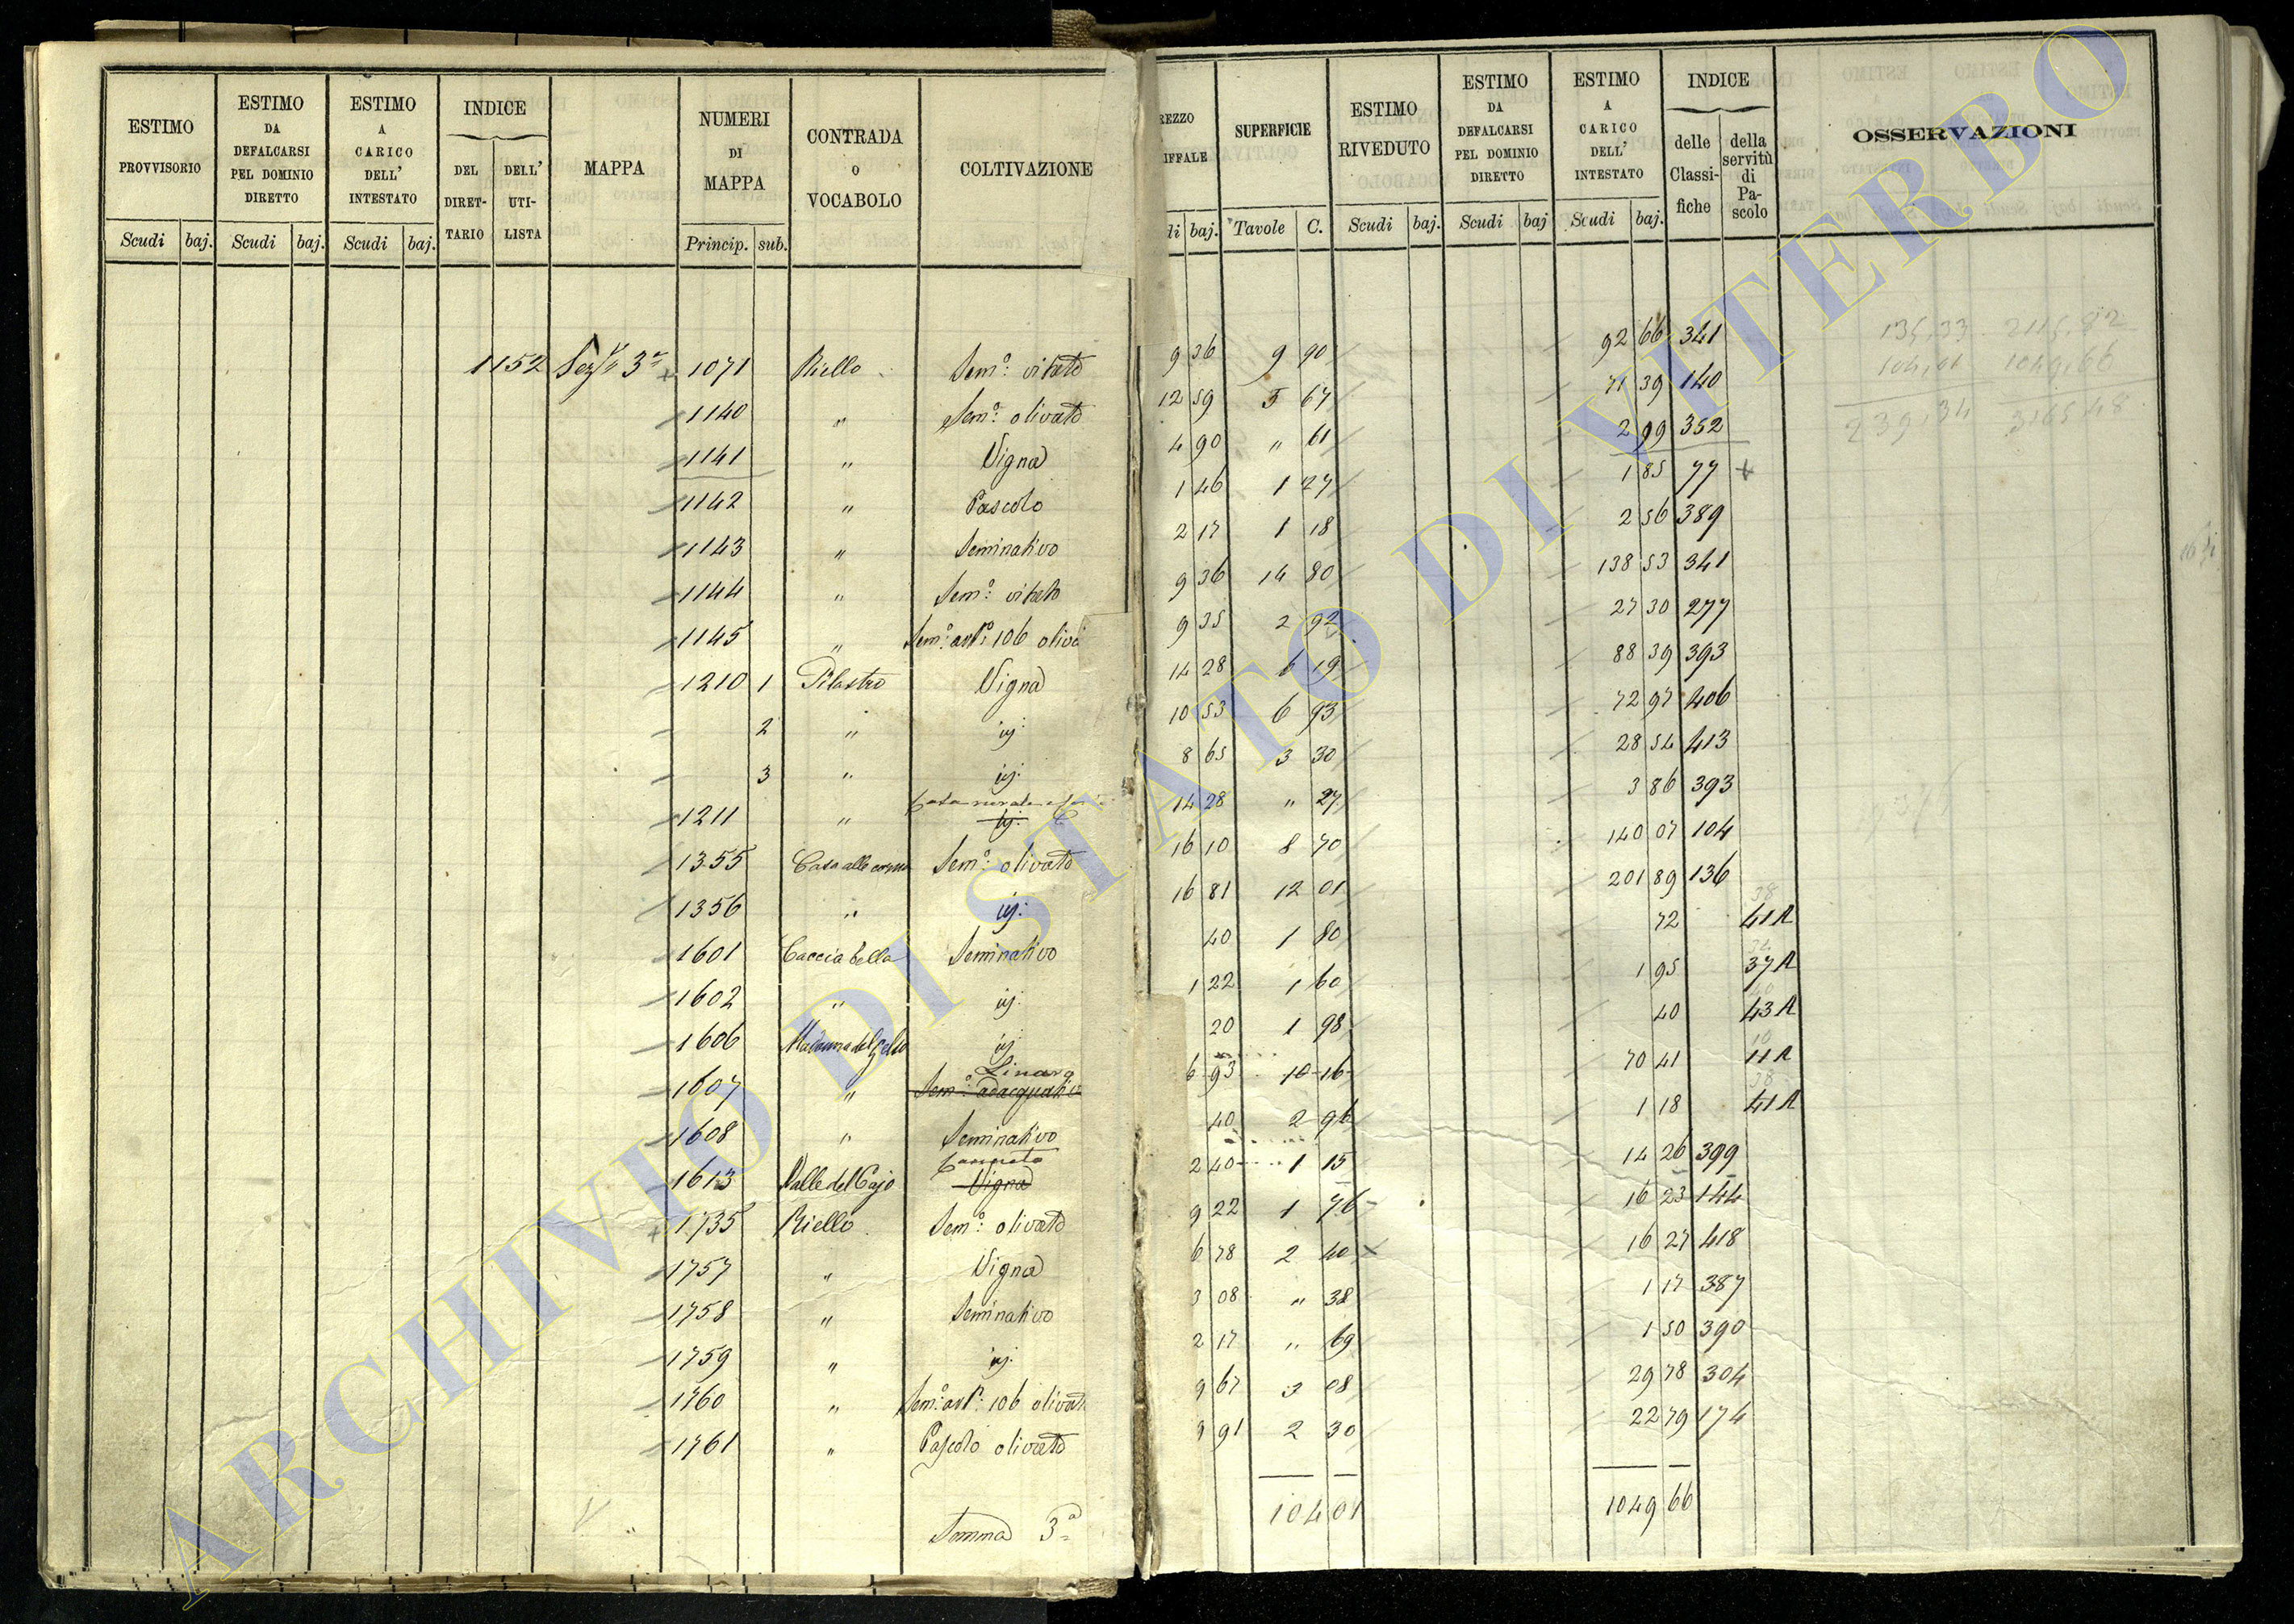 ESTIMO PROVVISORIO
ESTIMO DA DEFALCARSI PEL DOMINIO DIRETTO
ESTIMO A CARICO DELL' INTESTATO
INDICE
DEL DIRETTARIO
DELL' UTILISTA
MAPPA
NUMERI DI MAPPA
CONTRADA O VOCABOLO
COLTIVAZIONE
REZZO IFFALE
SUPERFICIE
ESTIMO RIVEDUTO
ESTIMO DA DEFALCARSI PEL DOMINIO DIRETTO
ESTIMO A CARICO DELL' INTESTATO
INDICE
delle Classifiche
della servitù di Pascolo
OSSERVAZIONI
Scudi baj. Scudi baj. Scudi baj. Princip. sub. di baj. Tavole C. Scudi baj. Scudi baj Scudi baj.
1152 Sez. 3a 1071 Riello Sem.o vitato 9 36 9 90 92 66 341
1140 " Sem.o olivato 12 59 5 67 71 39 140
1141 " Vigna 4 90 " 61 2 99 352
1142 " Pascolo 1 46 1 27 1 85 77 +
1143 " Seminativo 2 17 1 18 2 56 389
1144 " Sem.o vitato 9 36 14 80 138 53 341
1145 " Sem.o art.o 106 oliva 9 35 2 92 27 30 277
1210 1 Pilastro Vigna 14 28 6 19 88 39 393
2 " 10 53 6 93 72 97 406
3 " 8 65 3 30 28 54 413
1211 " Casa rurale 14 28 " 27 3 86 393
1355 Casa alle Sem.o olivato 16 10 8 70 140 07 104
1356 " 16 81 12 01 201 89 136
1601 Caccia bella Seminativo 40 1 80 72 38 41 A
1602 " 1 22 1 60 1 95 34 37 A
1606 Madonna del Gelso 20 1 98 40 40 43 A
1607 " Linara Sem.o adacquativo 6 93 10 16 70 41 10 11 A
1608 " Seminativo 40 2 96 1 18 38 41 A
1613 Valle del Cajo Canneto Vigna 2 40 1 15 14 26 399
1735 Riello Sem.o olivato 9 22 1 76 16 23 144
1757 " Vigna 6 78 2 40 16 27 418
1758 " Seminativo 3 08 " 38 1 17 387
1759 " 2 17 " 69 1 50 390
1760 " Sem.o art.o 106 olivat 9 67 3 08 29 78 304
1761 " Pascolo olivato 9 91 2 30 22 79 174
Somma 3a 104 01 1049 66
135,33 2115,82
104,01 1049,66
239,34 3165,48
ARCHIVIO DI STATO DI VITERBO